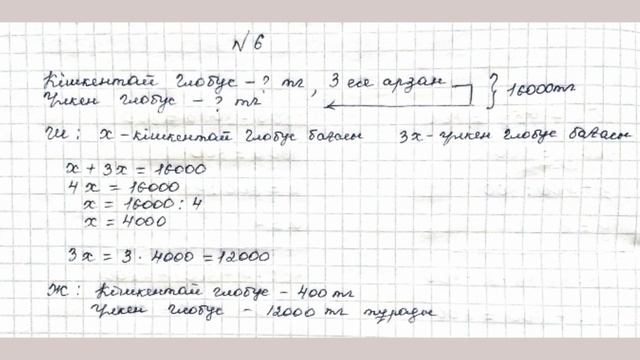 №6
Кішкентай глобус - ? тг, 3 есе арзан } 16000тг
Үлкен глобус - ? тг
Ш: х - кішкентай глобус бағасы 3х - үлкен глобус бағасы
х + 3х = 16000
4х = 16000
х = 16000 : 4
х = 4000
3х = 3 · 4000 = 12000
Ж: Кішкентай глобус - 400 тг
Үлкен глобус - 12000 тг тұрады